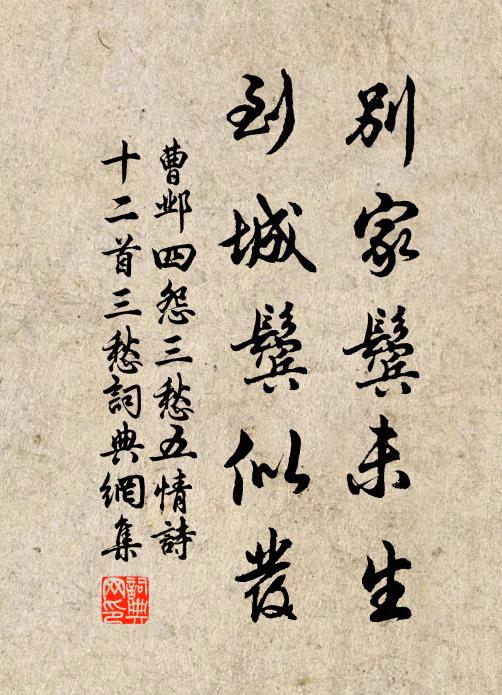 別家鬢未生
到城鬢似發
曹邺四怨三愁五情詩
十二首三愁詞典網集
詞典
网印